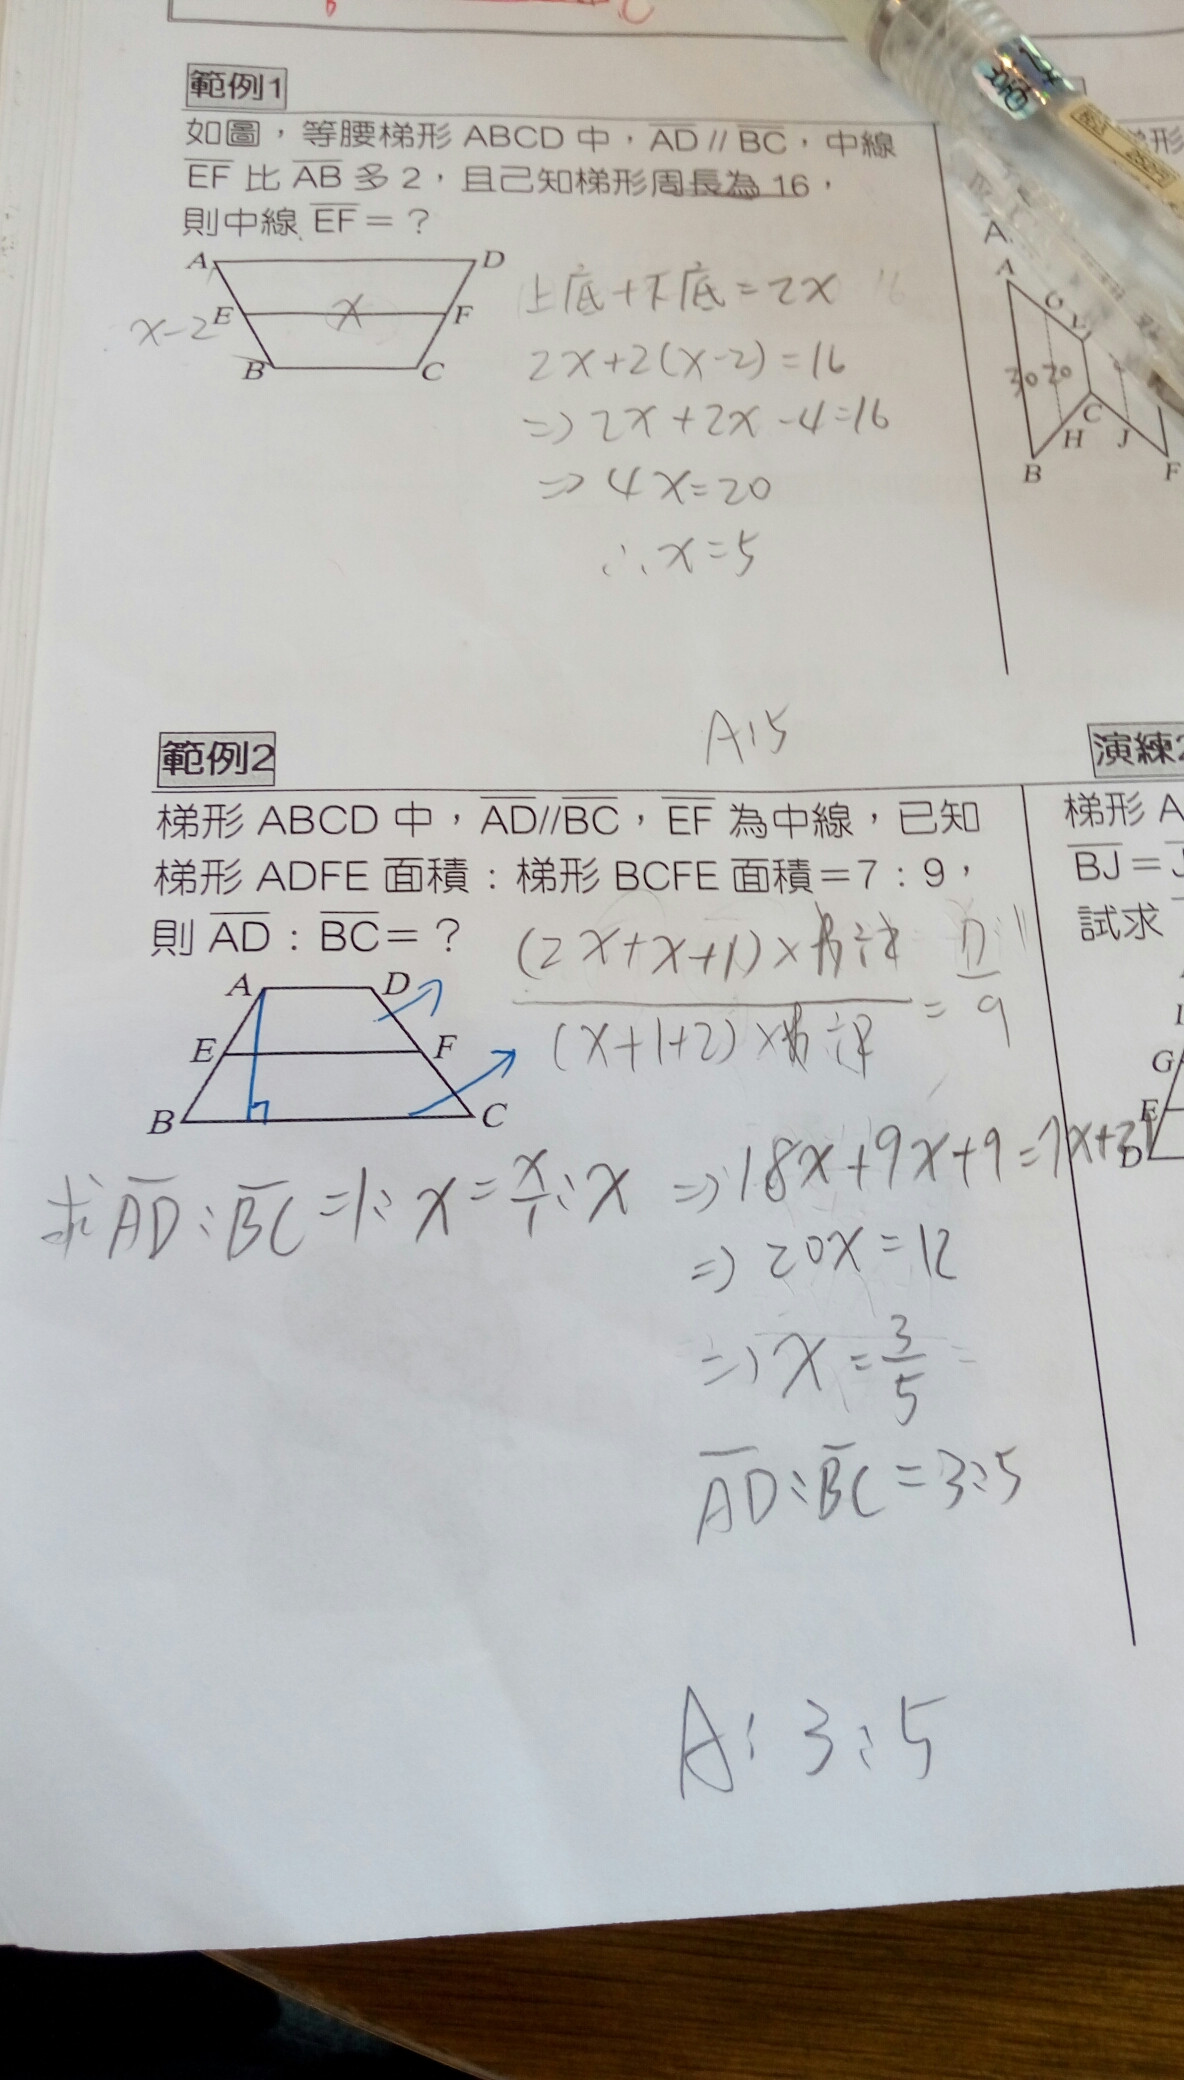 範例1
如圖，等腰梯形 ABCD 中，AD // BC，中線
EF 比 AB 多 2，且己知梯形周長為 16，
則中線 EF = ？
A D
E x F
x-2
B C
上底+下底=2x
2x+2(x-2)=16
⇒ 2x+2x-4=16
⇒ 4x=20
∴ x=5
A:5
A
A
G
30 20
C
H J
B F
範例2
梯形 ABCD 中，AD//BC，EF 為中線，已知
梯形 ADFE 面積：梯形 BCFE 面積=7：9，
則 AD：BC=？
A D
E F
B C
(2x+x+1)×
= 9
(x+1+2)×
求 AD:BC=1:x=x/1:x
⇒ 18x+9x+9=7x+
⇒ 20x=12
⇒ x=3/5
AD:BC=3:5
A: 3:5
演練2
梯形 A
BJ=
試求
G
E